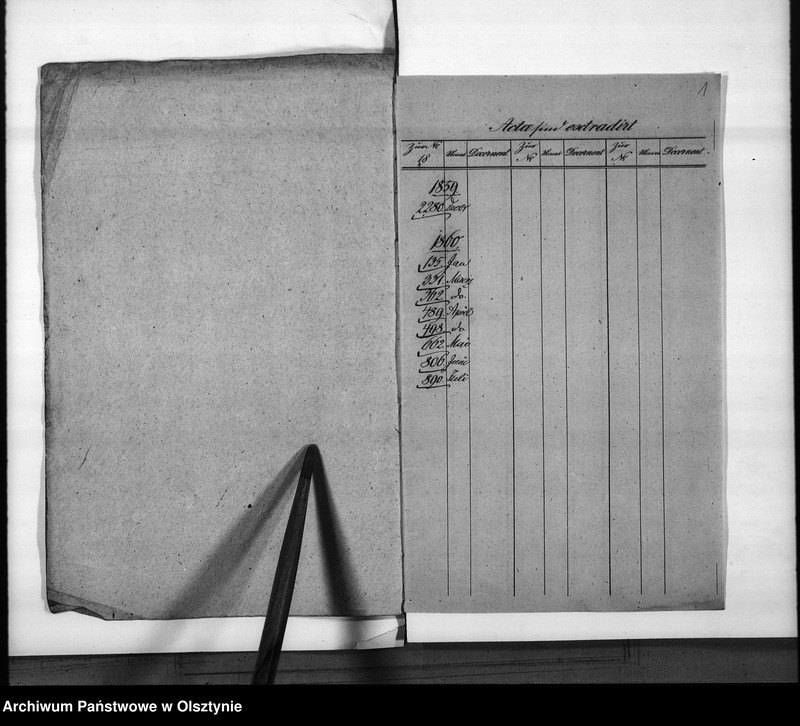 1
Acta sind extradirt
Zur Nr Monat Decernent Zur Nr Monat Decernent Zur Nr Monat Decernent
18
1859
2280 Decbr
1860
135 Jan
334 Maerz
362 do
489 April
498 do
662 Mai
806 Juni
890 Juli
Archiwum Państwowe w Olsztynie